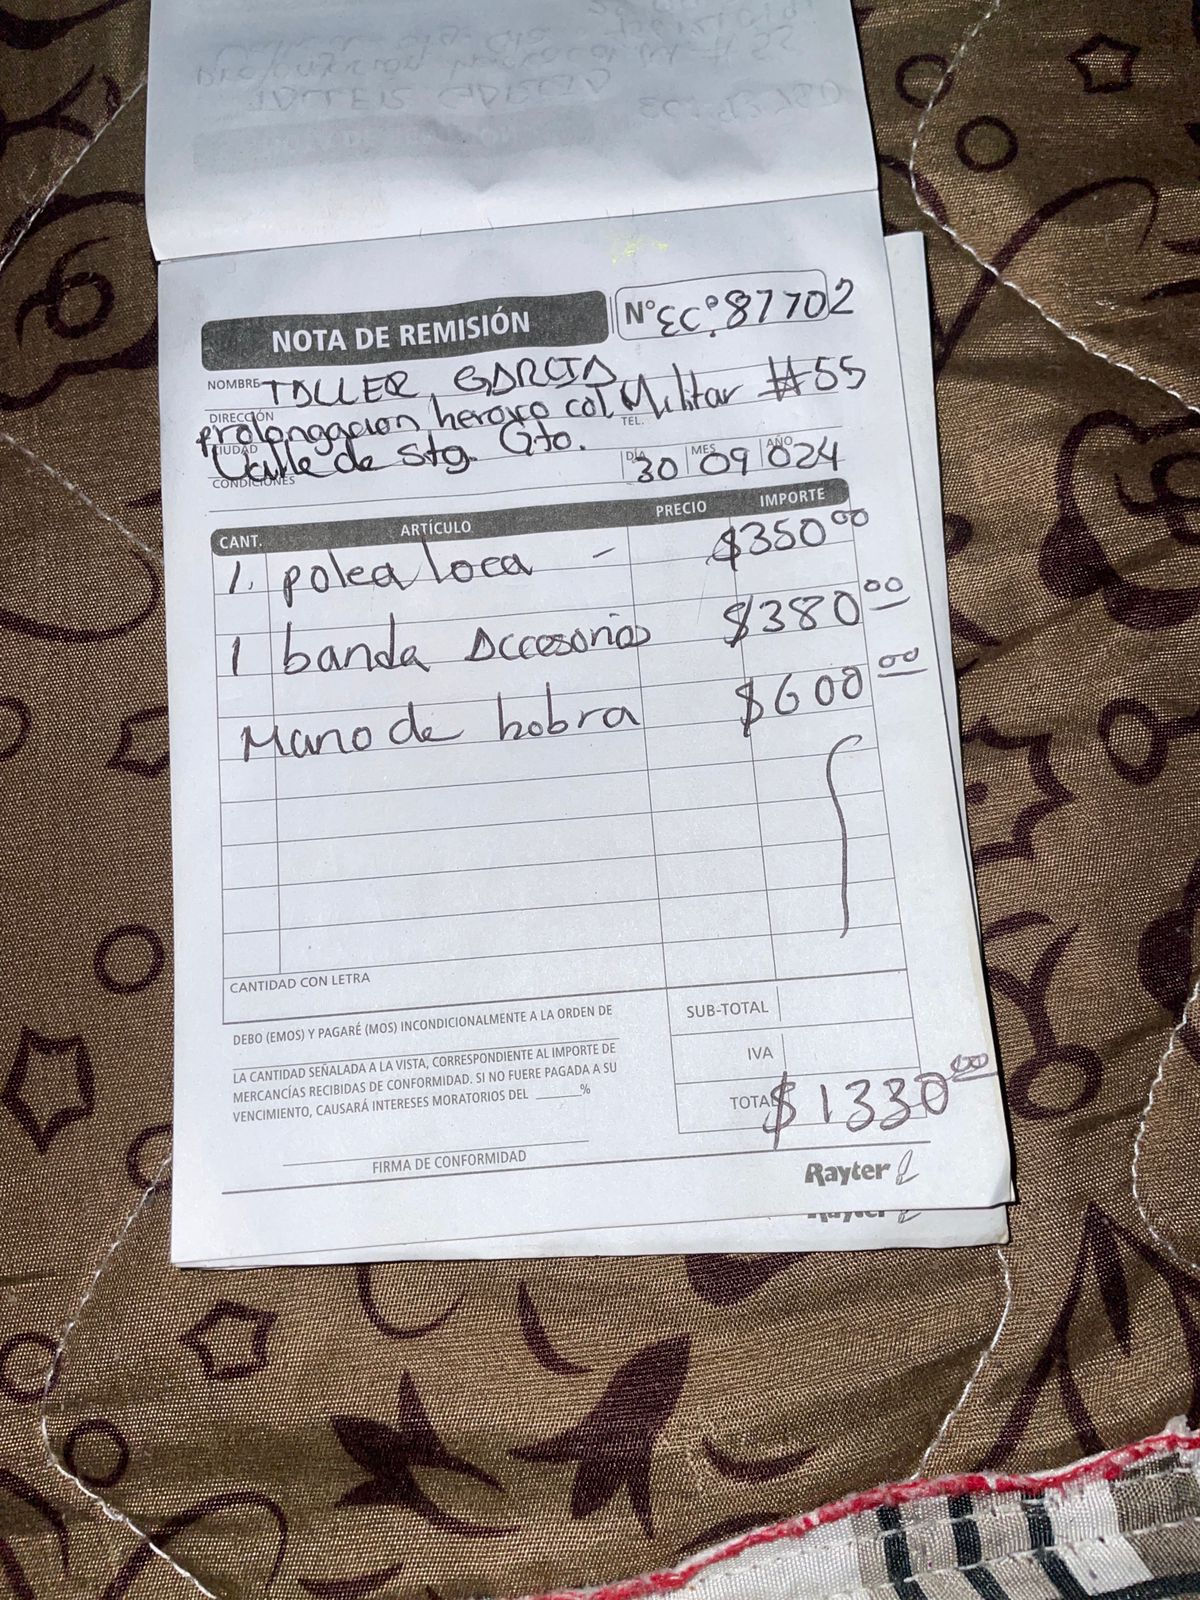 NOTA DE REMISIÓN
Nº EC.º 87702
NOMBRE TALLER GARCIA
DIRECCIÓN prolongacion heroico col. Militar #55
TEL.
CIUDAD Valle de Stg. Gto.
DÍA 30 MES 09 AÑO 024
CONDICIONES
CANT. ARTÍCULO PRECIO IMPORTE
1. polea loca - $350.00
1 banda Accesorios $380.00
Mano de hobra $600.00
CANTIDAD CON LETRA
DEBO (EMOS) Y PAGARÉ (MOS) INCONDICIONALMENTE A LA ORDEN DE
LA CANTIDAD SEÑALADA A LA VISTA, CORRESPONDIENTE AL IMPORTE DE
MERCANCÍAS RECIBIDAS DE CONFORMIDAD. SI NO FUERE PAGADA A SU
VENCIMIENTO, CAUSARÁ INTERESES MORATORIOS DEL ______%
SUB-TOTAL
IVA
TOTAL $1330.00
FIRMA DE CONFORMIDAD
Rayter
Rayter